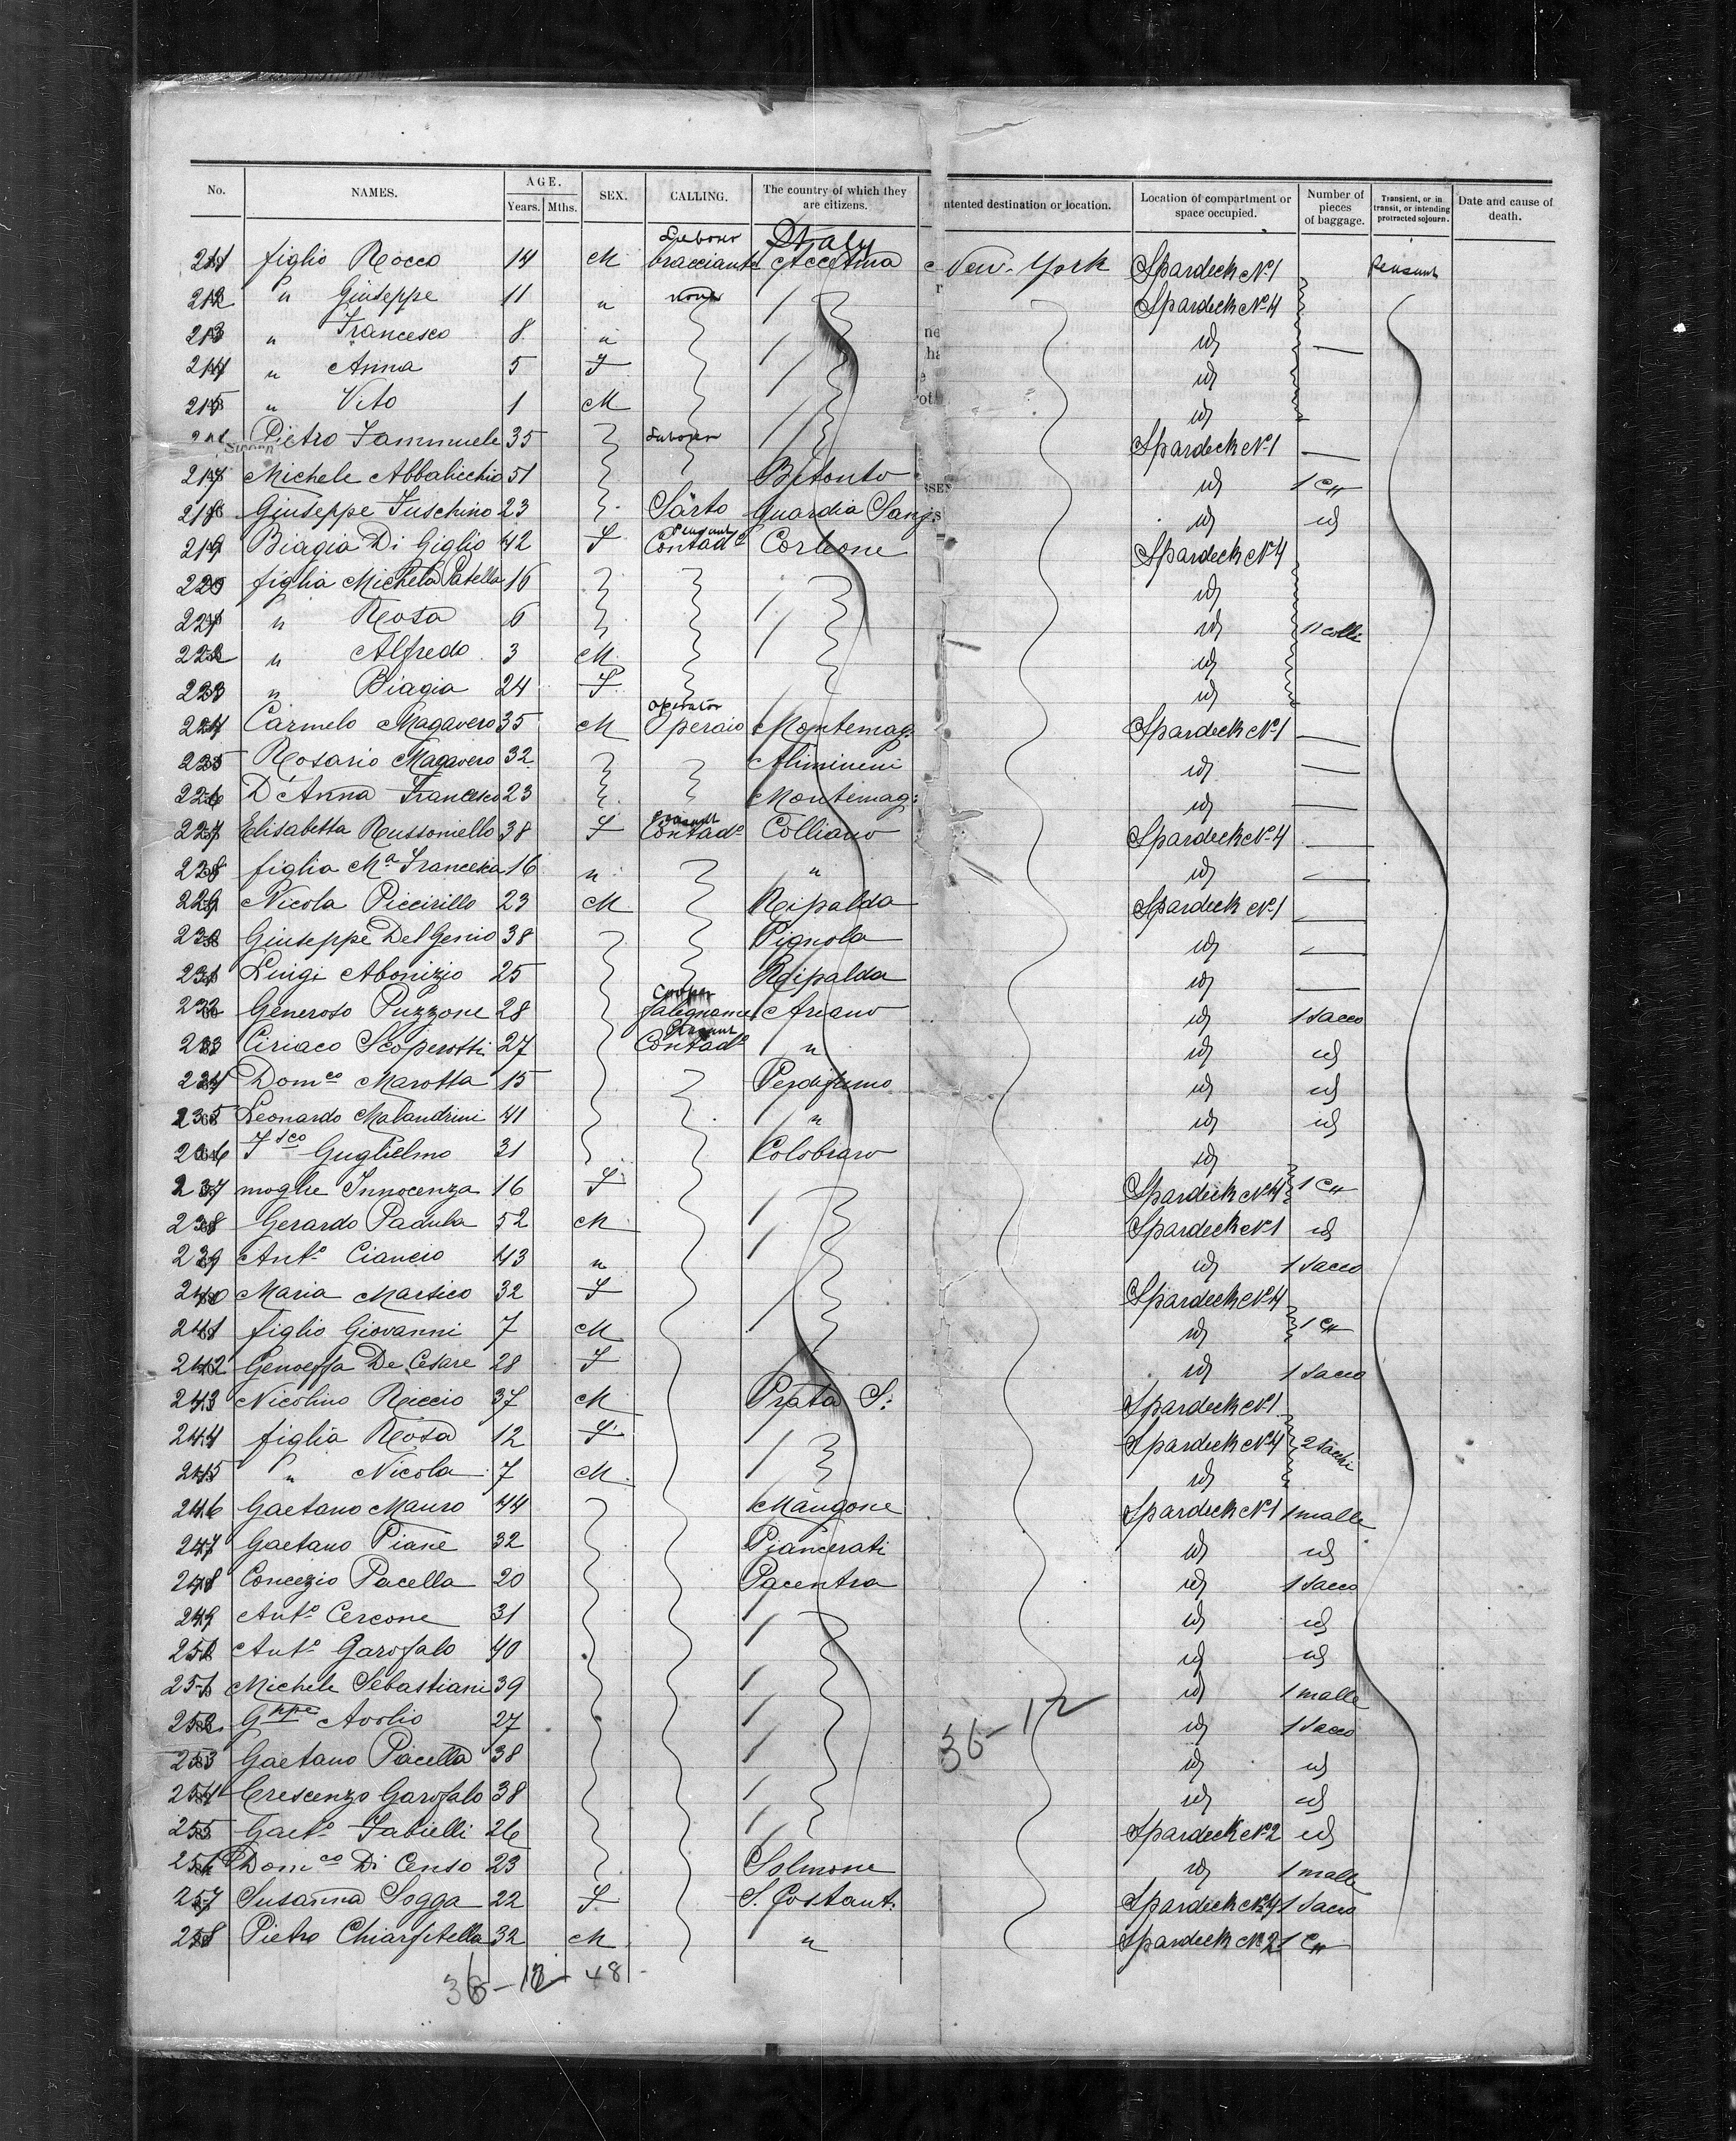 No. NAMES. AGE. Years. Mths. SEX. CALLING. The country of which they are citizens. ntented destination or location. Location of compartment or space occupied. Number of pieces of baggage. Transient, or in transit, or intending protracted sojourn. Date and cause of death.
Laborer Italy
211 figlio Rocco 14 M bracciante New-York Spardeck No1
212 " Giuseppe 11 " none Spardeck No4
213 " Francesco 8 " id —
214 " Anna 5 F id
215 " Vito 1 M id
Pietro Iammuele 35 Laborer Spardeck No1 —
217 Michele Abbaticchio 51 Bitonto id 1 Ca
218 Giuseppe Fuschino 23 Sarto Guardia Sang. id id
219 Biagia Di Giglio 42 F Peasant Contada Corleone Spardeck No4
220 figlia Michela Patella 16 id
221 " Rosa 6 id 11 colli
222 " Alfredo 3 M id
223 " Biagia 24 F id
224 Carmelo Magavero 35 M operator Operaio Montemag. Spardeck No1 —
225 Rosario Magavero 32 Alimineni id —
226 D'Anna Francesco 23 Montemag: id —
227 Elisabetta Russoniello 38 F Contada Colliano Spardeck No4 —
228 figlia Ma Francesca 16 " " id —
229 Nicola Piccirillo 23 M Ripalda Spardeck No1 —
230 Giuseppe Del Genio 38 Pignola id —
231 Luigi Abonizio 25 Ripalda id —
232 Generoso Puzzone 28 falegname Ariano id 1 sacco
233 Ciriaco Scoperotti 27 Peasant Contado " id id
234 Domco Marotta 15 Perdifumo id id
235 Leonardo Malandrini 41 " id id
236 Fsco Guglielmo 31 Colobraro id
237 moglie Innocenza 16 F Spardeck No4 1 Ca
238 Gerardo Padula 52 M Spardeck No1 id
239 Anto Ciancio 43 " id 1 sacco
240 Maria Marsico 32 F Spardeck No4
241 figlio Giovanni 7 M id 1 Ca
242 Genoeffa De Cesare 28 F id 1 sacco
243 Nicolino Riccio 37 M Prata S: Spardeck No1
244 figlia Rosa 12 F Spardeck No4 2 sacchi
245 " Nicola 7 M id
246 Gaetano Mauro 44 Mangone Spardeck No1 1 malle
247 Gaetano Piane 32 Piancrati id id
248 Concezio Pacella 20 Pacentra id 1 sacco
249 Anto Cercone 31 id id
250 Anto Garofalo 40 id id
251 Michele Sebastiani 39 id 1 malle
252 Gppe Avolio 27 36-12 id 1 sacco
253 Gaetano Pacella 38 id id
254 Crescenzo Garofalo 38 id id
255 Gaeto Fabielli 26 Spardeck No2 id
256 Domco Di Censo 23 Solmone id 1 malle
257 Susanna Sogga 22 F S. Costant. Spardeck No4 1 Sacco
258 Pietro Chiarfitella 32 M " Spardeck No2 1 Ca
36-12 48